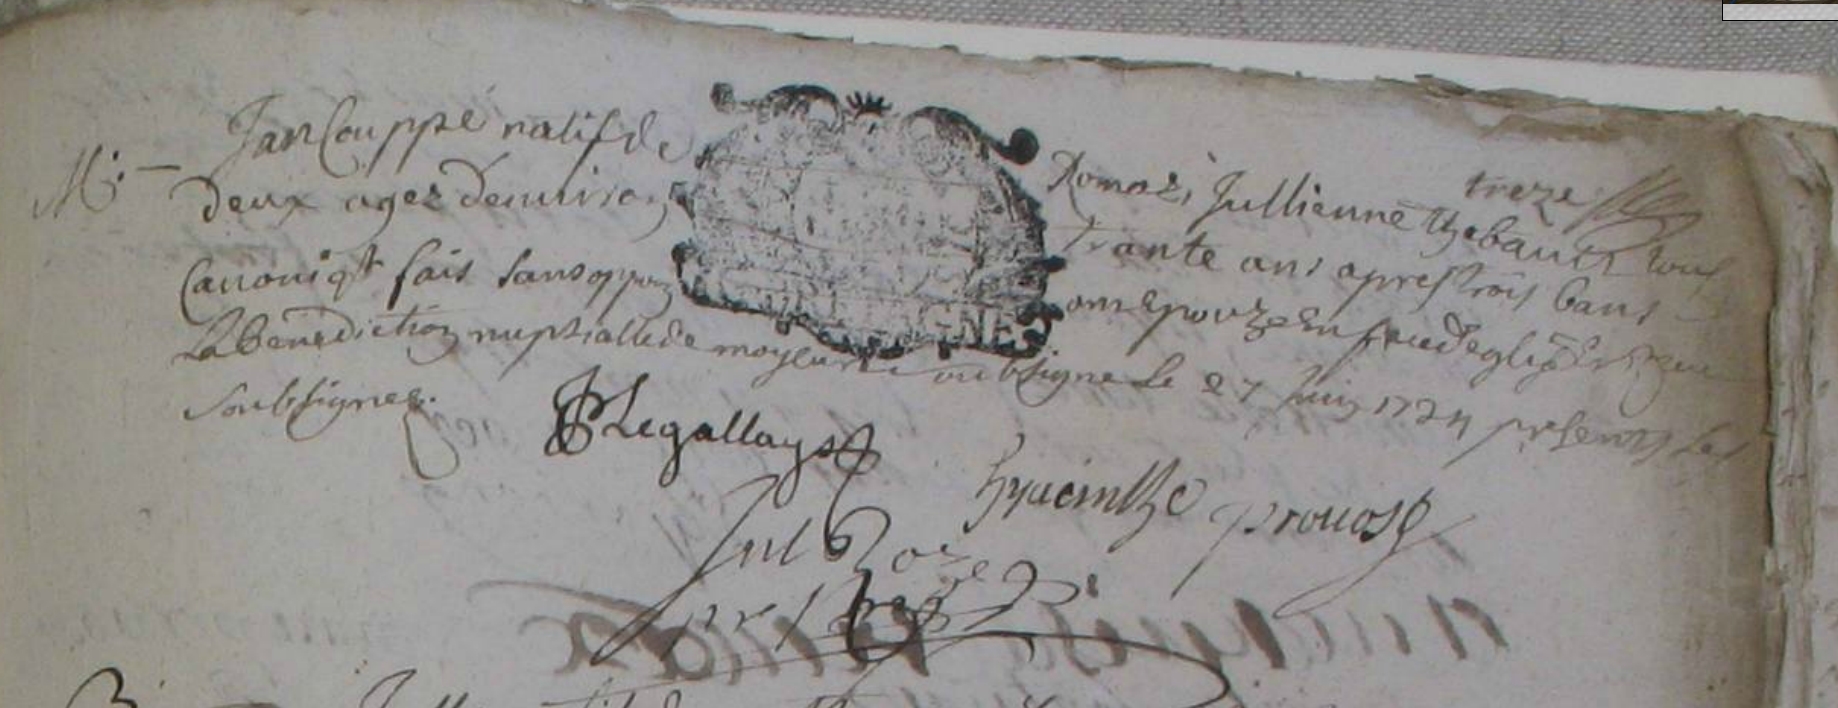 treze
M: - Jan Couppé natif de Romaz, Jullienne Thebault tous
deux agez denuiron trante ans apres trois bans
Canoniqt fais sans oppon ont Epouzé En face deglise Et Receu
La benediction nuptialle de moy soubsigne Le 27 Juin 1724 presents Les
soubsignez.
Legallays
hyacinthe prouost
Jul Roze
ptre
GNE